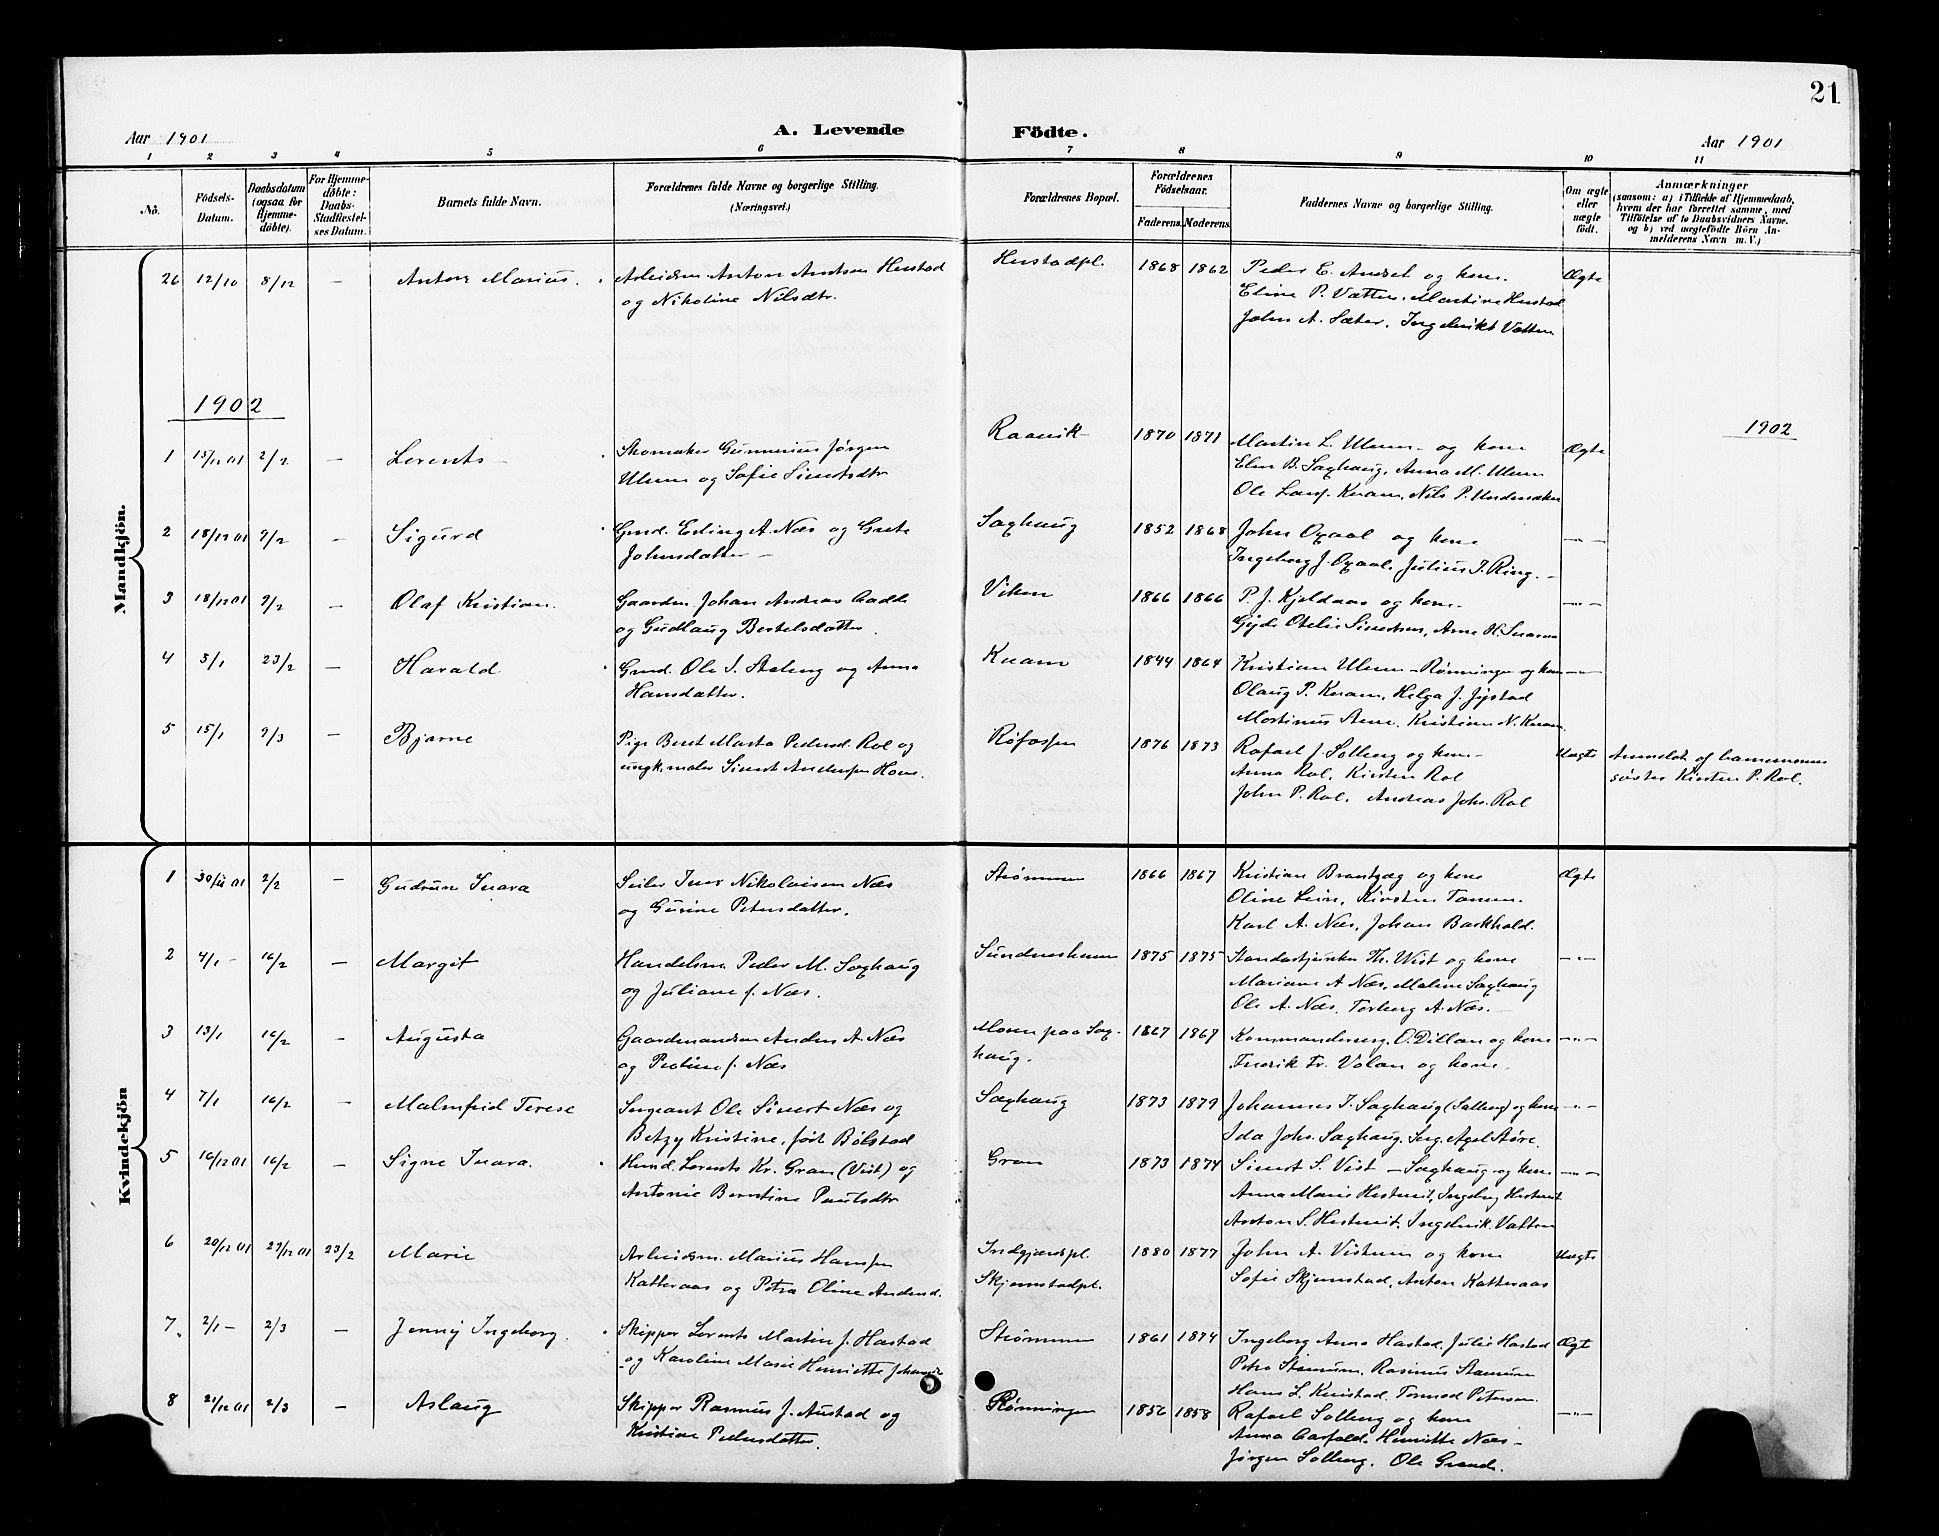 21
Aar 1901
A. Levende Födte.
Aar 1901
1 2 3 4 5 6 7 8 9 10 11
No.
Födsels-Datum.
Daabsdatum (ogsaa for Hjemme-döbte).
For Hjemme-döbte: Daabs-Stadfæstel-ses Datum.
Barnets fulde Navn.
Forældrenes fulde Navne og borgerlige Stilling. (Næringsvei.)
Forældrenes Bopæl.
Forældrenes Födselsaar.
Faderens. Moderens.
Faddernes Navne og borgerlige Stilling.
Om ægte eller uægte födt.
Anmærkninger
(saasom: a) i Tilfælde af Hjemmedaab, hvem der har forrettet samme, med Tilföielse af to Daabsvidners Navne. og b) ved uægtefödte Börn Anmelderens Navn m. V.)
Mandkjön.
26 12/10 8/12 — Anton Marius. Arbeidsm. Anton Antsen Hustad Hustadpl. 1868 1862 Peder E. Ausset og kone Ægte
og Nikoline Nilsdtr. Eline P. Vætten, Martine Hustad
John A. Sæter, Ingebrikt Vatten
1902
1902
1 15/12 01 2/2 — Lorents Skomaker Gunnerius Jørgen Raavik 1870 1871 Martin L. Ulven og kone Ægte
Ulven og Sofie Sivertsdtr Elen B. Saxhaug, Anna M. Ulven
Ole Lars. Kvam, Nils P.
2 18/12 01 9/2 — Sigurd Gmd. Erling A. Næs og Grete Saxhaug 1852 1868 John Oxaal og kone —"—
Johnsdatter — Ingeborg J. Oxaal, Julius J. Ring.
3 18/12 01 9/2 — Olaf Kristian. Gaardm. Johan Andreas Viken 1866 1866 P. J. Kjeldaas og kone —"—
og Gudlaug Bertelsdatter. Gyda Otelie Sivertsen, Arne H.
4 5/1 23/2 — Harald Gmd. Ole S. og Anna Kvam 1844 1864 Kristian Ulven-Rønningen og kone —"—
Hansdatter. Olaug P. Kvam, Helga J. Jystad
Martinus Aune, Kristian N. Kvam
5 15/1 9/3 — Bjarne Pige Beret Marta Pedersd. Rol og Røfossen 1876 1873 Rafael J. Solberg og kone Uægte Anmeldt af barnemorens
ungk. maler Sivert Andersen Anna Rol, Kirsten Rol søster Kirsten P. Rol.
John P. Rol, Andreas Johs. Rol
Kvindekjön
1 30/11 01 2/2 — Gudrun Ivara Seiler Iver Nikolaisen Næs Strømmen 1866 1867 Kristian Brandtzæg og kone Ægte
og Gurine Petersdatter. Oline Lein, Kirsten
Karl A. Næs, Johan Barkhald.
2 4/1 — 16/2 — Margit Handelsm. Peder M. Saxhaug Sundneshavn 1875 1875 Standartjunker Th. Wist og kone —"—
og Juliane f. Næs. Mariane A Næs, Malene Saxhaug
Ole A. Næs, Torberg A. Næs.
3 13/1 16/2 — Augusta Gaardmandsøn Anders A. Næs Moen paa Sax- 1867 1867 Kommandersrg. O. Dillan og kone —"—
og Petrine f. Næs haug. Fredrik Fr. Volan og kone
4 7/1 16/2 — Malmfrid Terese Sergeant Ole Sivert Næs og Saxhaug 1873 1879 Johannes J. Saxhaug (Salberg) og kone —"—
Betzy Kristine, født Bølstad Ida Johs. Saxhaug, Srg. Axel Støre.
5 16/12 01 16/2 — Signe Ivara. Husmd. Lorents Kr. Gran (Vist) og Gran 1873 1874 Sivert S. Vist — Saxhaug og kone —"—
Antonie Berntine Paulsdtr Anna Marie Hestveit, Ingeborg Hestveit
Anton S. Hestveit, Ingebrik. Vatten
6 20/12 01 27/12 01 23/2 Marie Arbeidsm. Marius Hansen Indgjærdspl. 1880 1877 John A. Vistven og kone Uægte
Katteraas og Petra Oline Andersd. Skjemstadpl. Sofie Skjemstad, Anton Katteraas
7 2/1 — 2/3 — Jenny Ingeborg. Skipper Lorents Martin J. Hastad Strømmen 1861 1874 Ingeborg Anna Hastad, Julie Hastad Ægte
og Karoline Marie Henriette Petra Stamnem, Rasmus Stamnem
Hans L. Knistad, Tormod Petersen.
8 21/12 01 2/3 — Aslaug Skipper Rasmus J. Austad og Rønningen 1856 1858 Rafael Solberg og kone —"—
Kristine Pedersdatter. Anna Aasfald, Henriette Næs
Jørgen Solberg, Ole Grande.